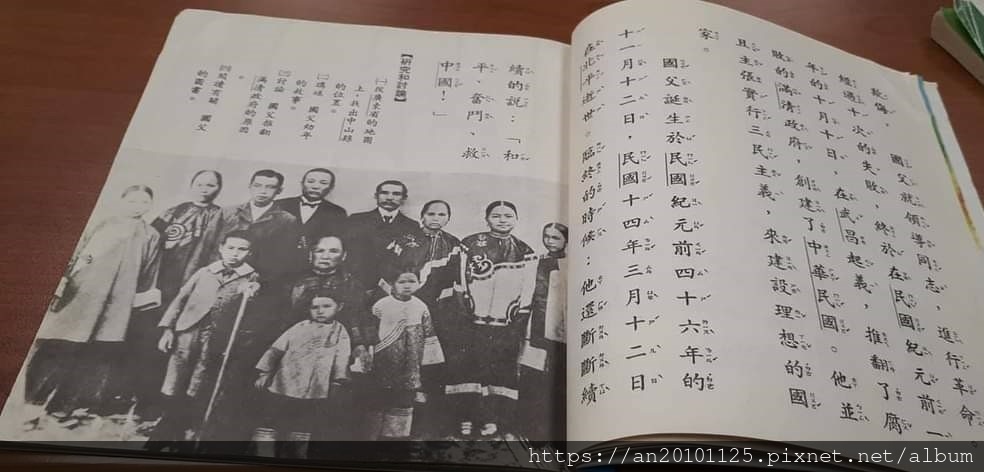 欺侮，國父就領導同志，進行革命。
經過十次的失敗，終於在民國紀元前一
年的十月十日，在武昌起義，推翻了腐
敗的滿清政府，創建了中華民國。他並
且主張實行三民主義，來建設理想的國
家。
國父誕生於民國紀元前四十六年的
十一月十二日，民國十四年三月十二日
在北平逝世。臨終的時候：他還斷斷續
續的說：「和
平、奮鬥、救
中國！」
【研究和討論】
㈠從廣東省的地圖
上，找出中山縣
的位置。
㈡講述　國父幼年
的故事。
㈢討論　國父推翻
滿清政府的原因
。
㈣閱讀有關　國父
的圖書。
https://an20101125.pixnet.net/album